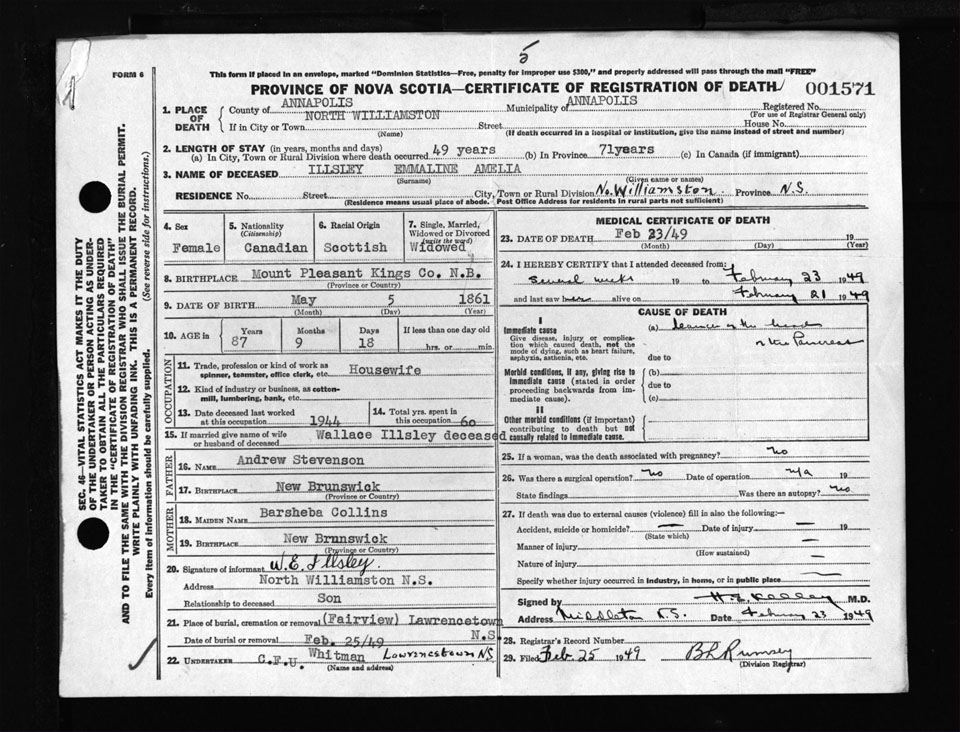 5
FORM 6
This form if placed in an envelope, marked "Dominion Statistics—Free, penalty for improper use $300," and properly addressed will pass through the mail "FREE"
PROVINCE OF NOVA SCOTIA—CERTIFICATE OF REGISTRATION OF DEATH 001571
1. PLACE OF DEATH County of ANNAPOLIS Municipality of ANNAPOLIS Registered No.
(For use of Registrar General only)
If in City or Town NORTH WILLIAMSTON Street House No.
(Name) (If death occurred in a hospital or institution, give the name instead of street and number)
2. LENGTH OF STAY (in years, months and days)
(a) In City, Town or Rural Division where death occurred 49 years (b) In Province 71years (c) In Canada (if immigrant)
3. NAME OF DECEASED ILLSLEY EMMALINE AMELIA
(Surname) (Given name or names)
RESIDENCE No. Street City, Town or Rural Division No. Williamston Province N.S.
(Residence means usual place of abode. Post Office Address for residents in rural parts not sufficient)
4. Sex Female
5. Nationality (Citizenship) Canadian
6. Racial Origin Scottish
7. Single, Married, Widowed or Divorced (write the word) Widowed
8. BIRTHPLACE Mount Pleasant Kings Co. N.B.
(Province or Country)
9. DATE OF BIRTH May 5 1861
(Month) (Day) (Year)
10. AGE in Years Months Days If less than one day old
87 9 18 hrs. or min.
OCCUPATION
11. Trade, profession or kind of work as spinner, teamster, office clerk, etc. Housewife
12. Kind of industry or business, as cotton-mill, lumbering, bank, etc.
13. Date deceased last worked at this occupation 1944
14. Total yrs. spent in this occupation 60
15. If married give name of wife or husband of deceased Wallace Illsley deceased
FATHER
16. NAME Andrew Stevenson
17. BIRTHPLACE New Brunswick
(Province or Country)
MOTHER
18. MAIDEN NAME Barsheba Collins
19. BIRTHPLACE New Brunswick
(Province or Country)
20. Signature of informant W.E. Illsley.
Address North Williamston N.S.
Relationship to deceased Son
21. Place of burial, cremation or removal (Fairview) Lawrencetown N.S.
Date of burial or removal Feb. 25/49
22. UNDERTAKER C.F.U. Whitman Lawrencetown NS.
(Name and address)
MEDICAL CERTIFICATE OF DEATH
23. DATE OF DEATH Feb 23/49 19
(Month) (Day) (Year)
24. I HEREBY CERTIFY that I attended deceased from:
several weeks 19 to February 23 1949
and last saw her alive on February 21 1949
CAUSE OF DEATH
I
Immediate cause
Give disease, injury or complication which caused death, not the mode of dying, such as heart failure, asphyxia, asthenia, etc.
(a) Cancer of the head
of the Pancreas
due to
Morbid conditions, if any, giving rise to immediate cause (stated in order proceeding backwards from immediate cause).
(b)
due to
(c)
II
Other morbid conditions (if important) contributing to death but not causally related to immediate cause.
25. If a woman, was the death associated with pregnancy? no
26. Was there a surgical operation? no Date of operation n/a 19
State findings Was there an autopsy? no
27. If death was due to external causes (violence) fill in also the following:—
Accident, suicide or homicide? — Date of injury — 19
(State which)
Manner of injury —
(How sustained)
Nature of injury —
Specify whether injury occurred in industry, in home, or in public place —
Signed by M.D.
Address Middleton N.S. Date February 23 1949
28. Registrar's Record Number
29. Filed Feb. 25 1949 B L Rumsey
(Division Registrar)
SEC. 46—VITAL STATISTICS ACT MAKES IT THE DUTY
OF THE UNDERTAKER OR PERSON ACTING AS UNDER-
TAKER TO OBTAIN ALL THE PARTICULARS REQUIRED
IN THE "CERTIFICATE OF REGISTRATION OF DEATH"
AND TO FILE THE SAME WITH THE DIVISION REGISTRAR WHO SHALL ISSUE THE BURIAL PERMIT.
WRITE PLAINLY WITH UNFADING INK. THIS IS A PERMANENT RECORD.
Every item of information should be carefully supplied. (See reverse side for instructions.)